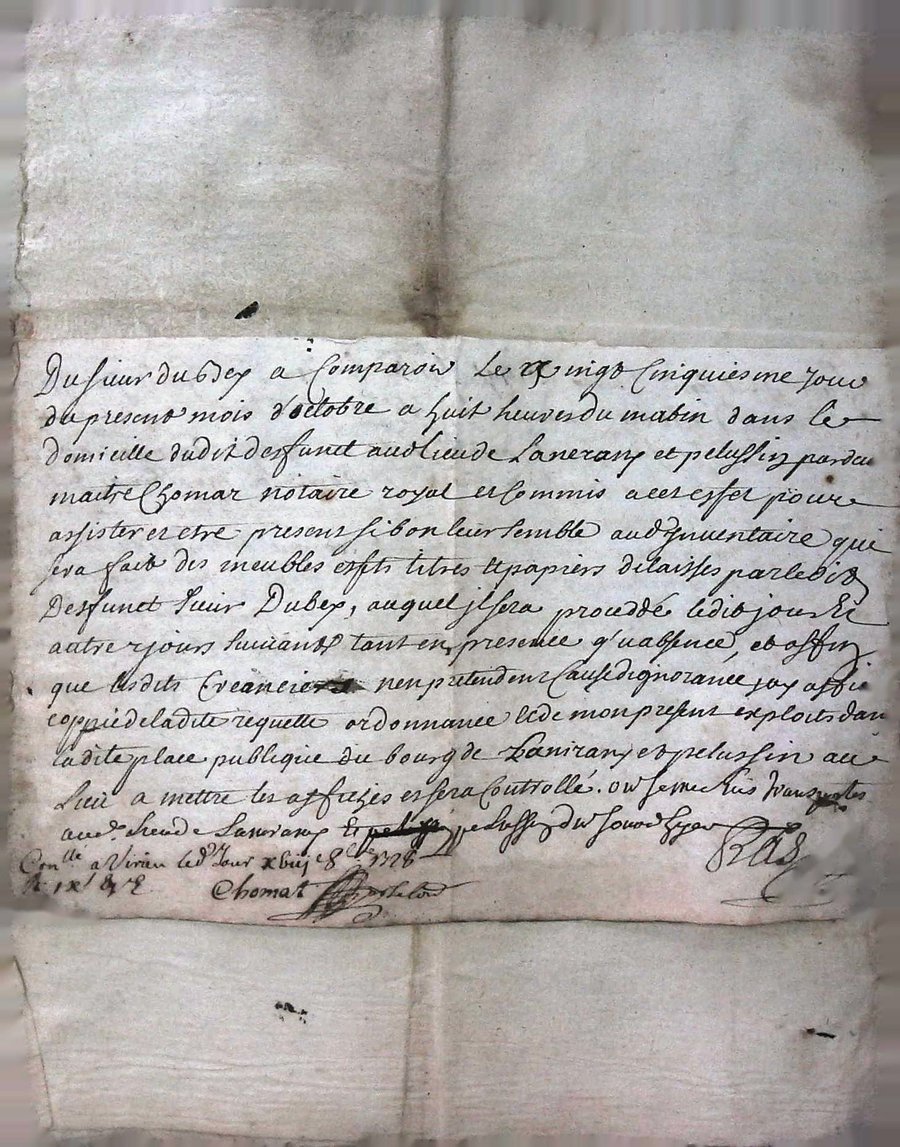 Du sieur dubex a Comparoir Le vingt Cinquiesme Jour
du present mois d'octobre a huit heures du matin dans le
domicille dudit desfunct audlieu de Laneranx et pelussin pardeu
maitre Chomaz notaire royal et Commis a cet effet pour
assister et etre present si bon leur semble aud Inventaire qui
sera fait des meubles effets titres et papiers delaisses par ledit
Desfunct sieur Dubex, auquel jl sera procedde ledit jour Et
autres jours suivants tant en presence q'uabsence, et affin
que lesdits Creanciers nen pretendent Cause dignorance jay affic
coppie de ladite requette ordonnance et de mon present exploits dan
ladite place publique du bourg de Laniranx et pelussin au
Lieu a mettre les affiches et sera Controllé. ou je me suis transportes
aud. lieu de Laneranx pelussin
Conllé a Virieu led Jour xbiije 8bre 1728
Chomat